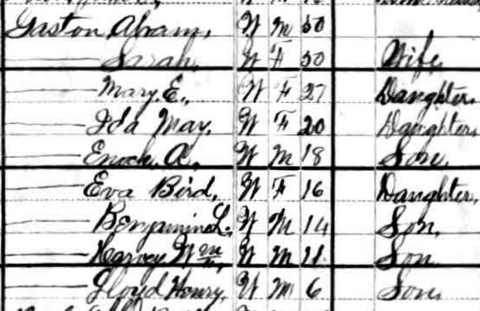 Gaston Abram, W M 50
Sarah, W F 50 Wife,
Mary E., W F 27 Daughter,
Ida May, W F 20 Daughter,
Enoch A., W M 18 Son,
Eva Bird, W F 16 Daughter,
Benjamin L., W M 14 Son,
Harvey Wm, W M 11 Son
Lloyd Henry, W M 6 Son,